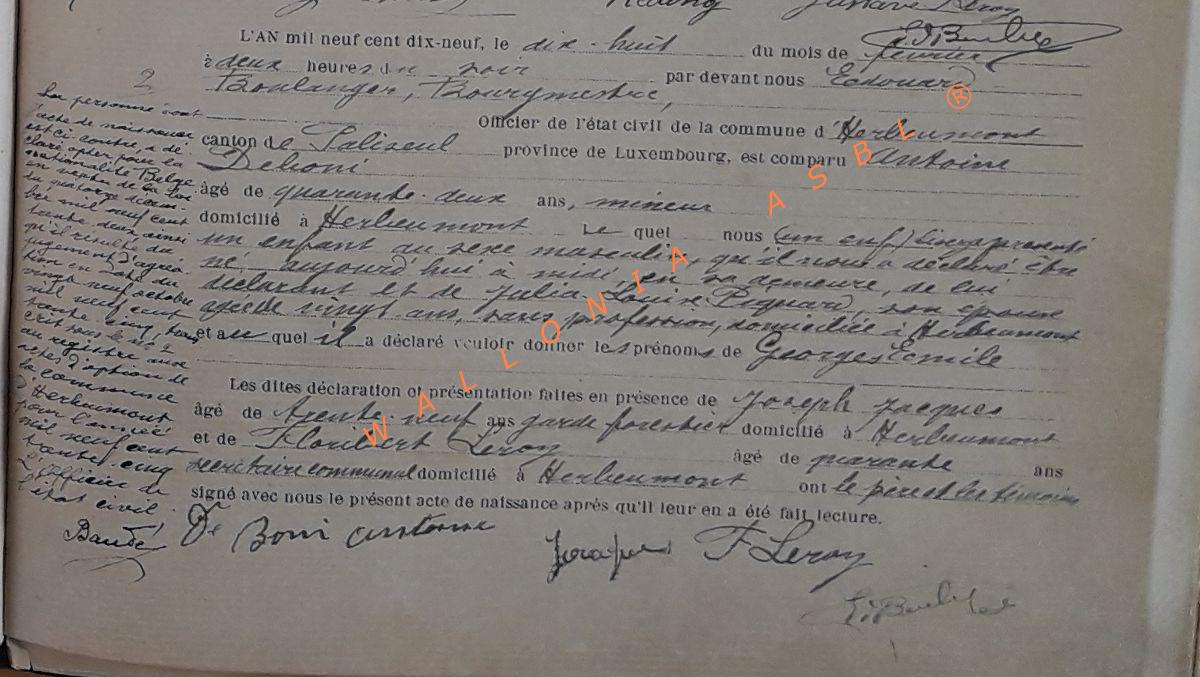 Gustave Leroy
L'AN mil neuf cent dix-neuf, le dix-huit du mois de février
à deux heures du soir par devant nous Edouard
Boulanger, Bourgmestre,
Officier de l'état civil de la commune d'Herbeumont
canton de Paliseul province de Luxembourg, est comparu Antoine
Deboni
âgé de quarante-deux ans, mineur
domicilié à Herbeumont Le quel nous (un enf) a présenté
un enfant du sexe masculin, qu'il nous a déclaré être
né, aujourd'hui à midi, en sa demeure, de lui
déclarant et de Julia Louise Pignard, son épouse
âgée de vingt ans, sans profession, domiciliée à Herbeumont
et au quel il a déclaré vouloir donner les prénoms de Georges Emile
Les dites déclaration et présentation faites en présence de Joseph Jacques
âgé de trente-neuf ans garde forestier domicilié à Herbeumont
et de Floribert Leroy âgé de quarante ans
secrétaire communal domicilié à Herbeumont ont le père et les témoins
signé avec nous le présent acte de naissance après qu'il leur en a été fait lecture.
De Boni antonne
Jacques F Leroy
2
La personne dont
l'acte de naissance
est ci-contre, a dé
claré opter pour la
nationalité Belge
en vertu de la loi
du quatorze décem-
bre mil neuf cent
trente deux, ainsi
qu'il résulte du
jugement d'agréa
tion en date du
vingt neuf octobre
mil neuf cent
trente cinq, trans
crit sous le n° 2
au registre aux
actes d'option de
la commune
d'Herbeumont
pour l'année
mil neuf cent
trente-cinq
L'officier de
l'état civil
WALLONIA ASBL ®